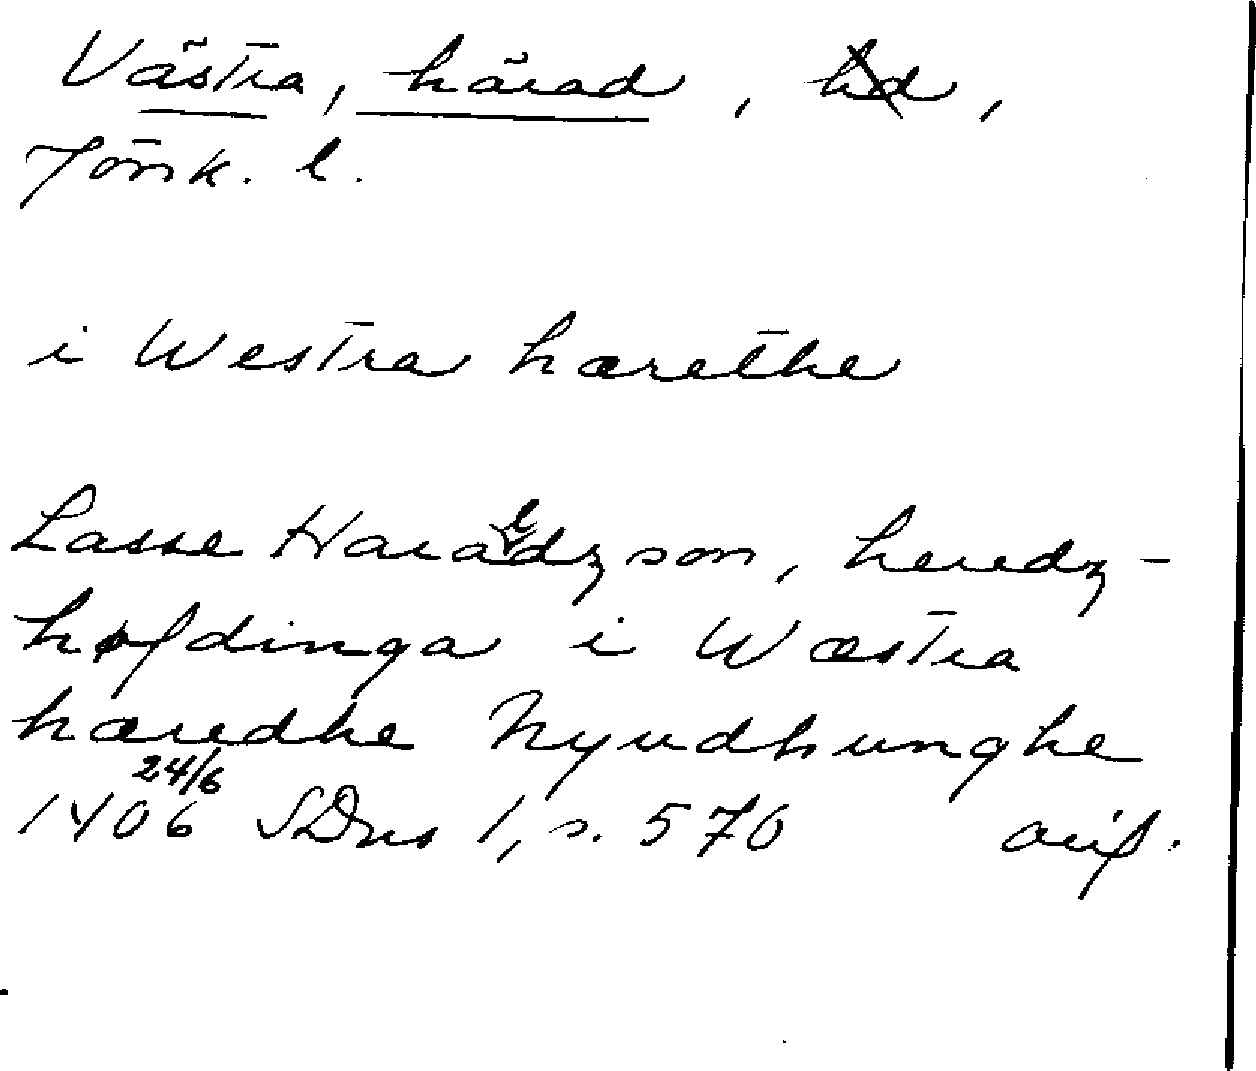 Västra, härad, hd,
Jönk. l.
i Westra hærethe
Lasse Haraldzson, heredz-
høfdinga i Wæstra
hæredhe Nyudhunghe
24/6
1406 SDns 1, s. 570 avs.